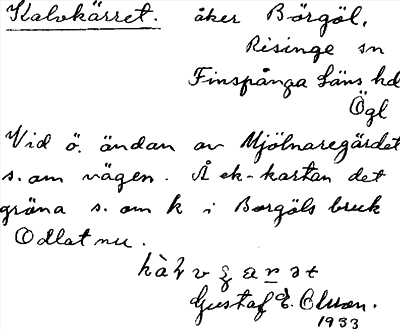 Kalvkärret. åker Börgöl,
Risinge sn
Finspånga läns hd
Ögl
Vid ö. ändan av Mjölnaregärdet
s. om vägen. Å ek-kartan det
gröna s. om k i Borgöls bruk
Odlat nu.
Gustaf E. Olsson.
1933